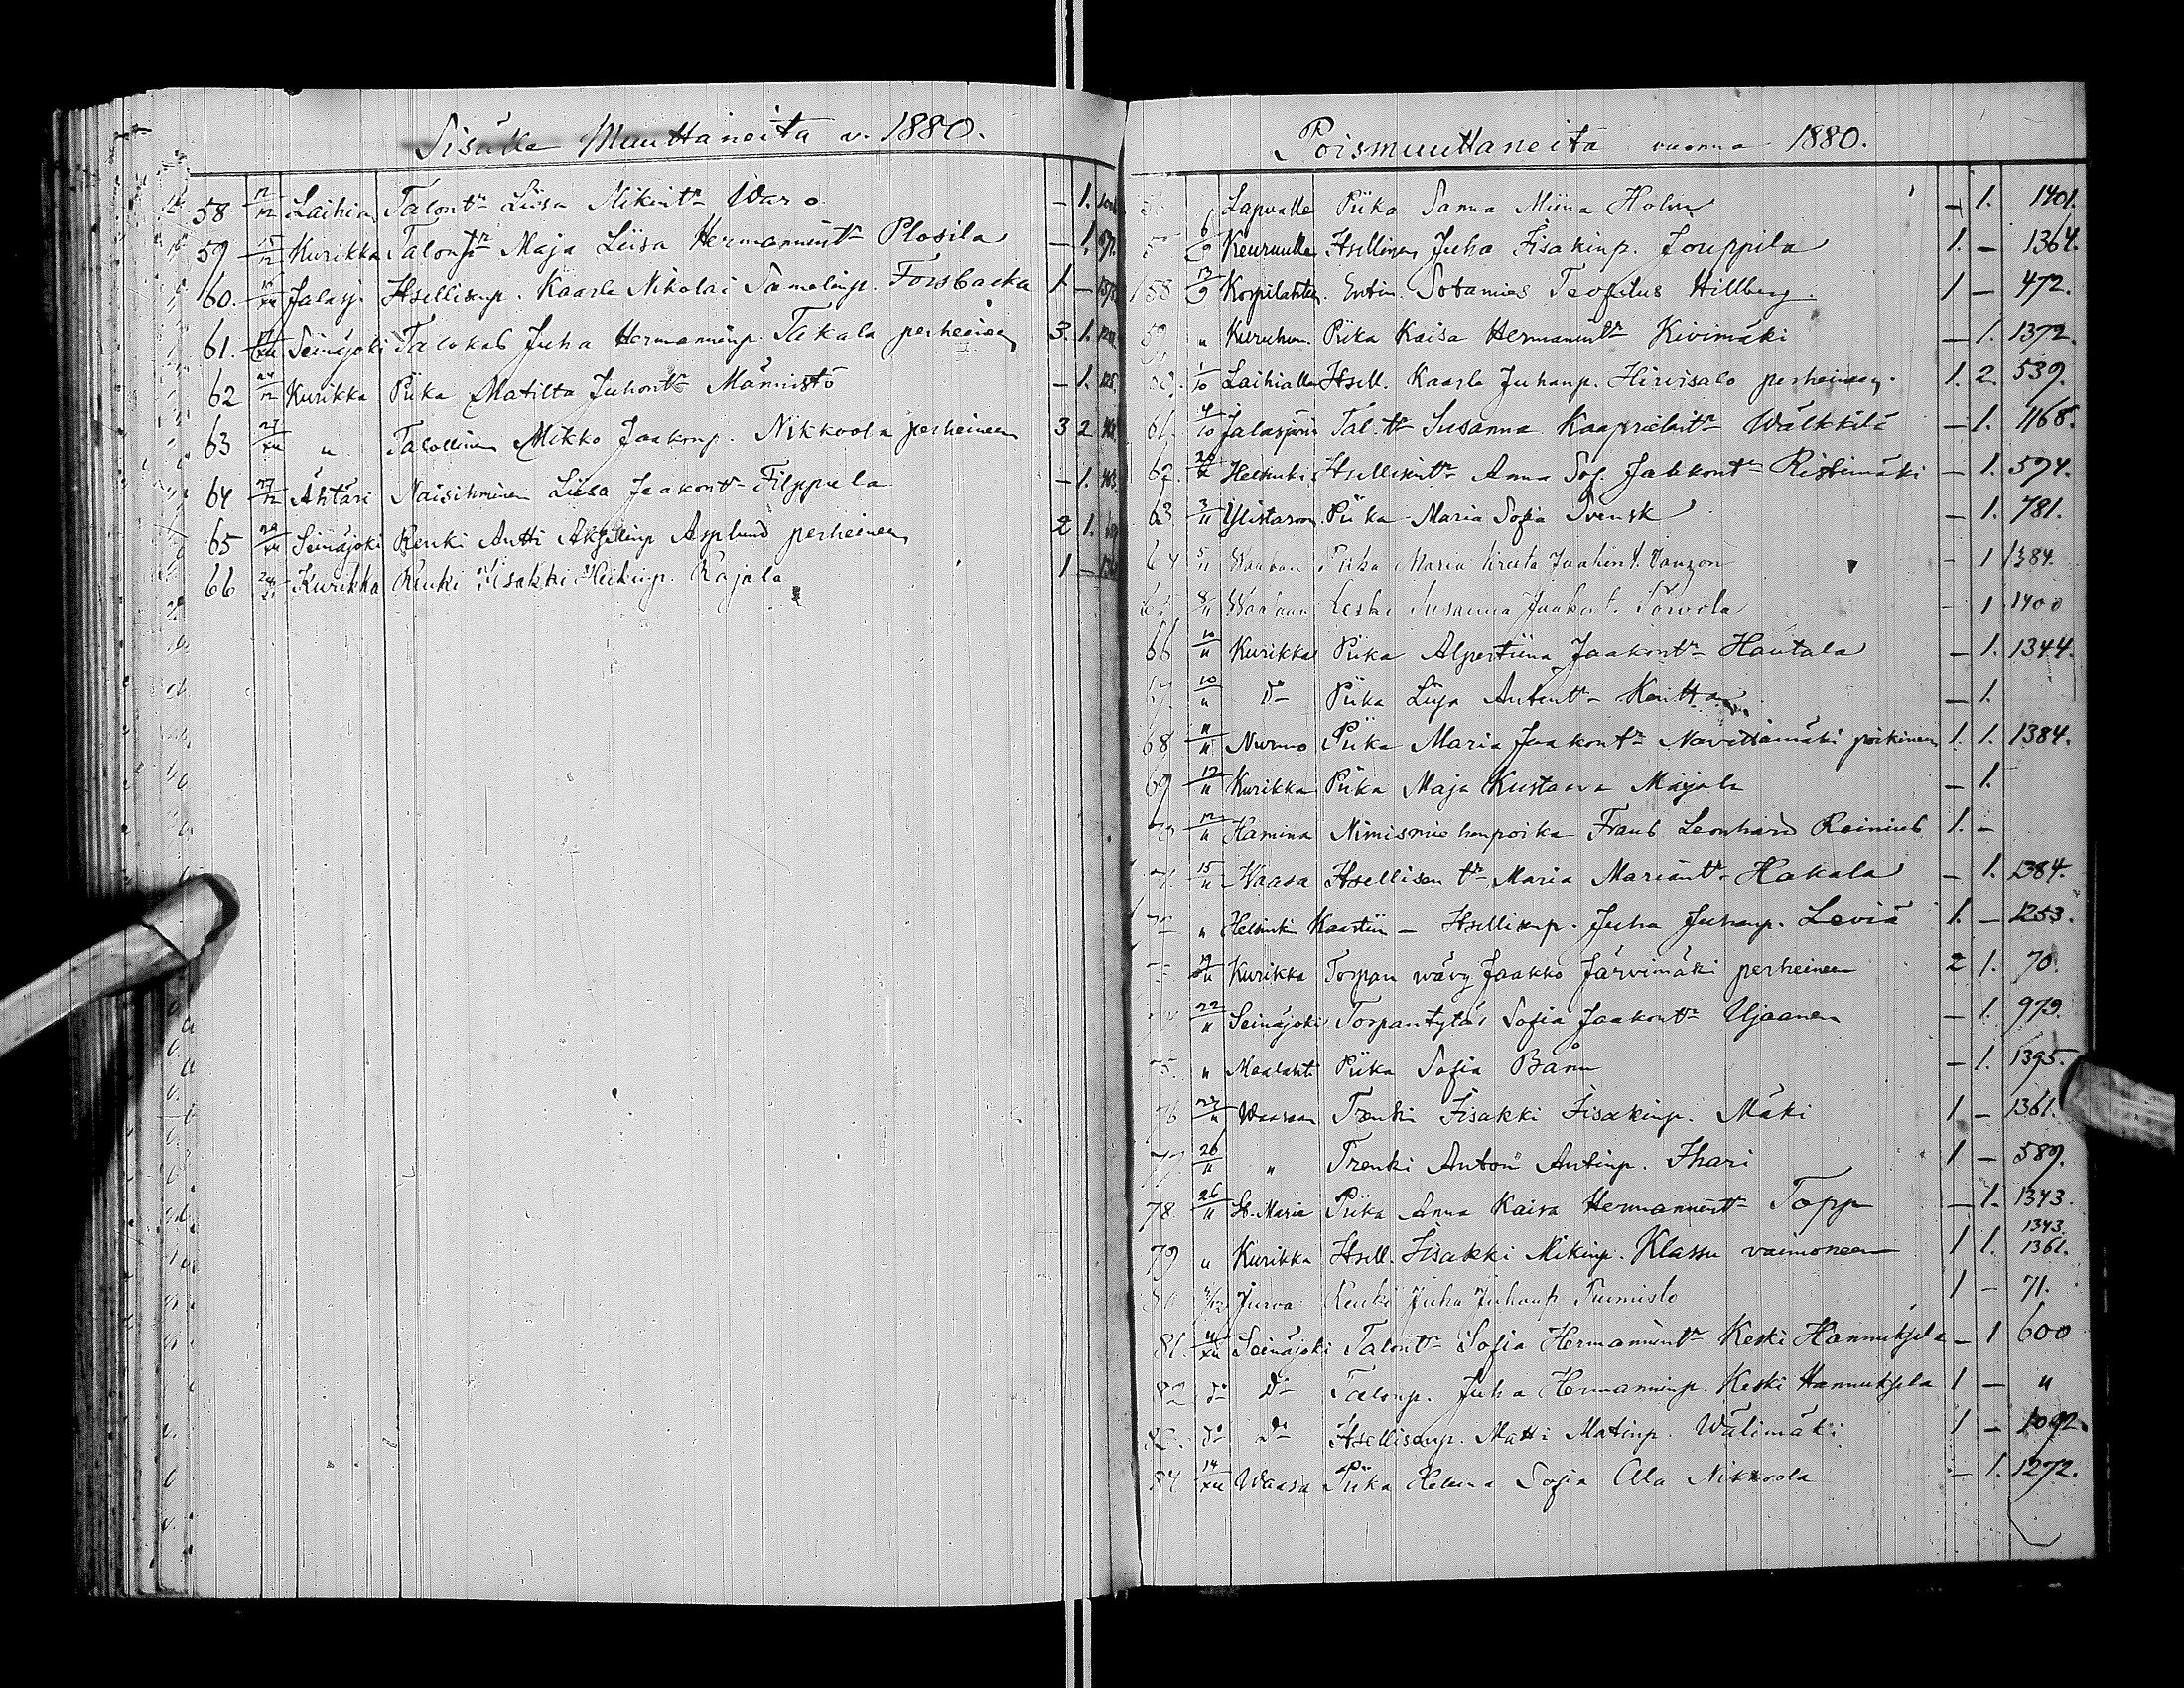 Sisälle Muuttaneita v. 1880.
58 12/12 Laihia Talont:r Liisa Mikint:r Waro — 1.
59 15/12 Kurikka Talont:r Maja Liisa Hermannint:r Plosila — 1.
60. 15/XII Jalasj. Itsellisenp. Kaarle Nikolai Samelinp. Forsbacka 1 —
61. XII Seinäjoki Talokas Juha Hermanninp. Takala perheineen 3. 1.
62 24/12 Kurikka Piika Matilta Juhont:r Männistö — 1.
63 27/XII " Talollinen Mikko Jaakonp. Nikkoola perheineen 3 2
64 27/12 Ähtäri Naisihminen Liisa Jaakont:r Filppula — 1.
65 29/XII Seinäjoki Renki Antti Akselinp Asplund perheineen 2 1.
66 Kurikka Renki Iisakki Heikinp. Rajala 1 —
Poismuuttaneita vuonna 1880.
Lapualle Piika Sanna Miina Holm — 1. 1401.
6/9 Keuruulle Itsellinen Juha Iisakinp. Jouppila 1. — 1364.
158 13/9 Korpilahtea. Entin. Sotamies Teofilus Hillberg. 1 — 472.
59 " Piika Kaisa Hermannint:r Kivimäki — 1. 1372.
1/10 Laihialle Itsell. Kaarle Juhanp. Hirvisalo perheineen. 1. 2. 539.
61. 4/10 Jalasjärvi Tal. t:r Susanna Kaaprielint:r Wälkkilä — 1. 1168.
62. Helsinki Itsellisent:r Anna Sof. Jaakkont:r Ristimäki — 1. 594.
63. 3/11 Ylistaroon Piika Maria Sofia Svensk — 1. 781.
64 5/11 Waasaan Piika Maria Kreeta Jaakint. — 1 1384.
65 8/11 Waasaan Leski Susanna Jaakont. — 1 1400
66 10/11 Kurikka Piika Alpertiina Jaakont:r Hautala — 1. 1344.
67. 10/11 D:o Piika Liisa Antint:r Kentta — 1.
68 11/11 Nurmo Piika Maria Jaakont:r poikineen 1. 1. 1384.
69 12/11 Kurikka Piika Maja Kustaava Marjala — 1.
70 12/11 Hamina Nimismiehenpoika Frans Leonhard Reinius 1. —
71. 15/11 Waasa Itsellisen t:r Maria Mariant:r Hakala — 1. 1384.
72 " Helsinki Kaartiin — Itsellisenp. Juha Juhanp. Leviä 1. — 1253.
19/11 Kurikka Torpan wävy Jaakko Järvimäki perheineen 2 1. 70.
74 22/11 Seinäjoki Torpantytär Sofia Jaakont:r Ujaanen — 1. 973.
75. " Maalahti Piika Sofia Bånn — 1. 1395.
76 23/11 Waasaan Trenki Iisakki Iisakinp. Mäki 1 — 1361.
77 26/11 " Trenki Anton Antinp. Ihari 1 — 589.
78. 26/11 St. Maria Piika Anna Kaisa Hermannint:r Topp — 1. 1343.
79 " Kurikka Itsell. Iisakki Mikinp. Klassu vaimoneen 1 1. 1343. 1361.
80 Jurva Renki Juha Juhanp Tuimisto 1 — 71.
81. 4/XII Seinäjoki Talont:r Sofia Hermannint:r Keski Hannuksela — 1 600
82 D:o D:o Talonp. Juha Hermanninp. Keski Hannuksela 1 — "
83. D:o D:o Itsellisenp. Matti Matinp. Wälimäki 1 — 1092.
84 14/XII Waasa Piika Helena Sofia Ala Nikkoola — 1. 1272.